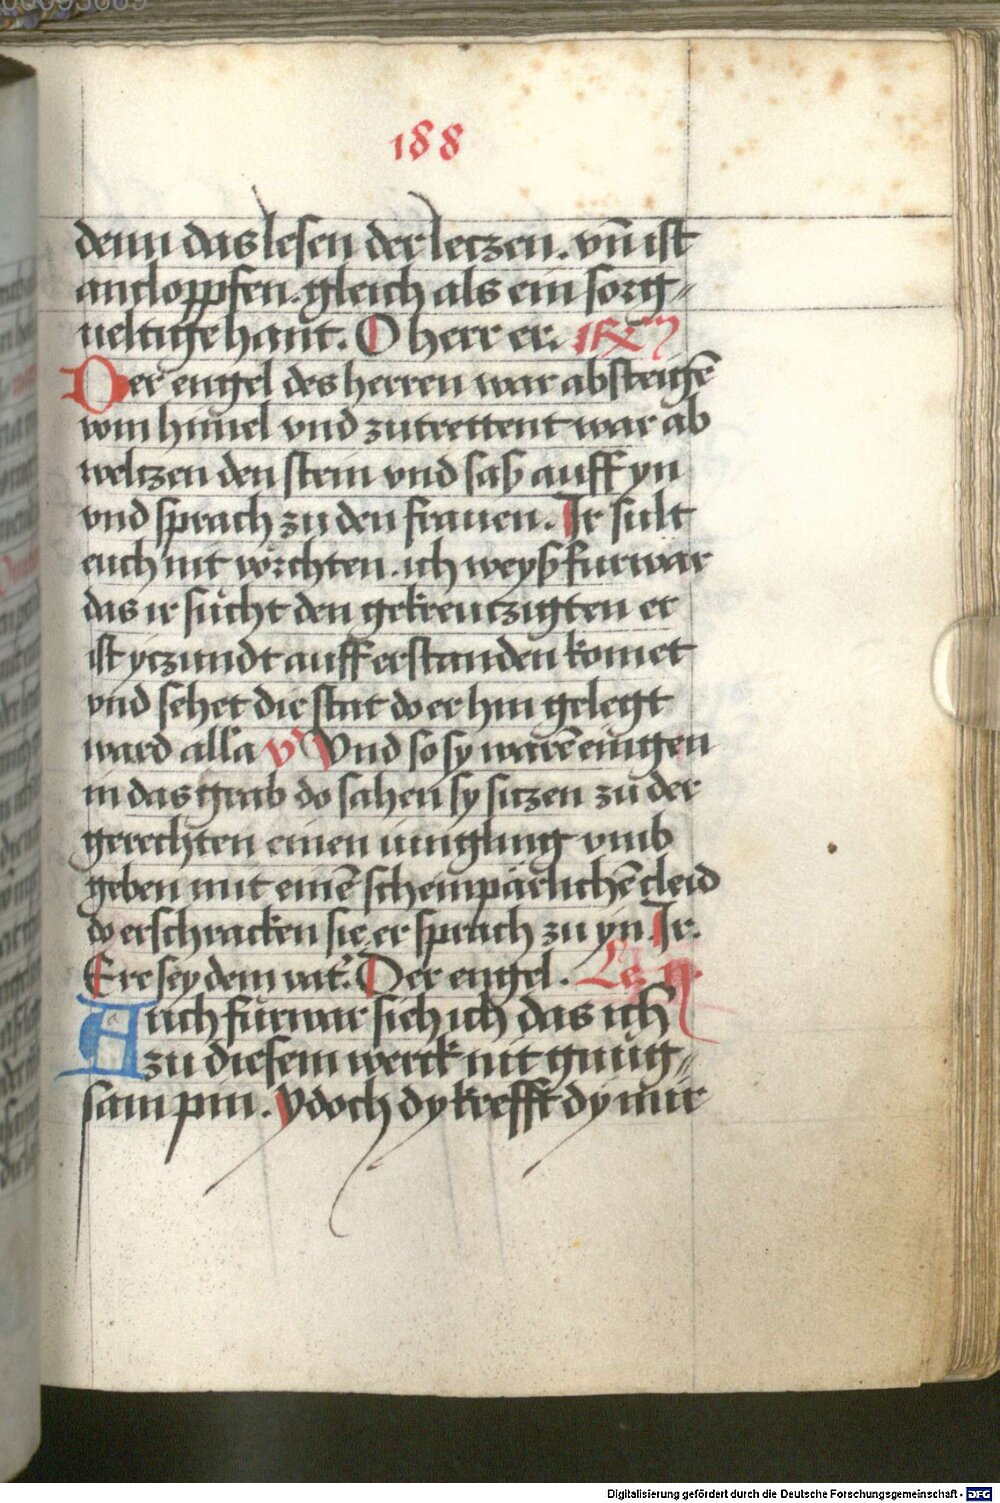 188
denn das lesen der leczen. vnd ist
anclopffen. gleich als ein sorg⸗
ueltige hant. O herr er.
Der engel des herren war absteigē
vom himel vnd zutrettent war ab
welczen den stein vnd saß auff yn
vnd sprach zu den frauen. Ir sult
euch nit vörchten. ich weyß furwar
das ir sücht den gekreuczigten er
ist yczundt aufferstanden komet
vnd sehet die stat do er hin gelegt
ward alla v̕ Vnd so sy warē eingen
in das grab do sahen sy siczen zu der
gerechten einen iungling vmb
geben mit einē scheinparlichē cleid
do erschracken sie er sprach zu yn Ir.
Ere sey dem vat̕. Der engel. Le.
Auch fürwar sich ich das ich
zu diesem werck nit gnüg⸗
sam pin. ydoch dy krefft dy mir
Digitalisierung gefördert durch die Deutsche Forschungsgemeinschaft - DFG